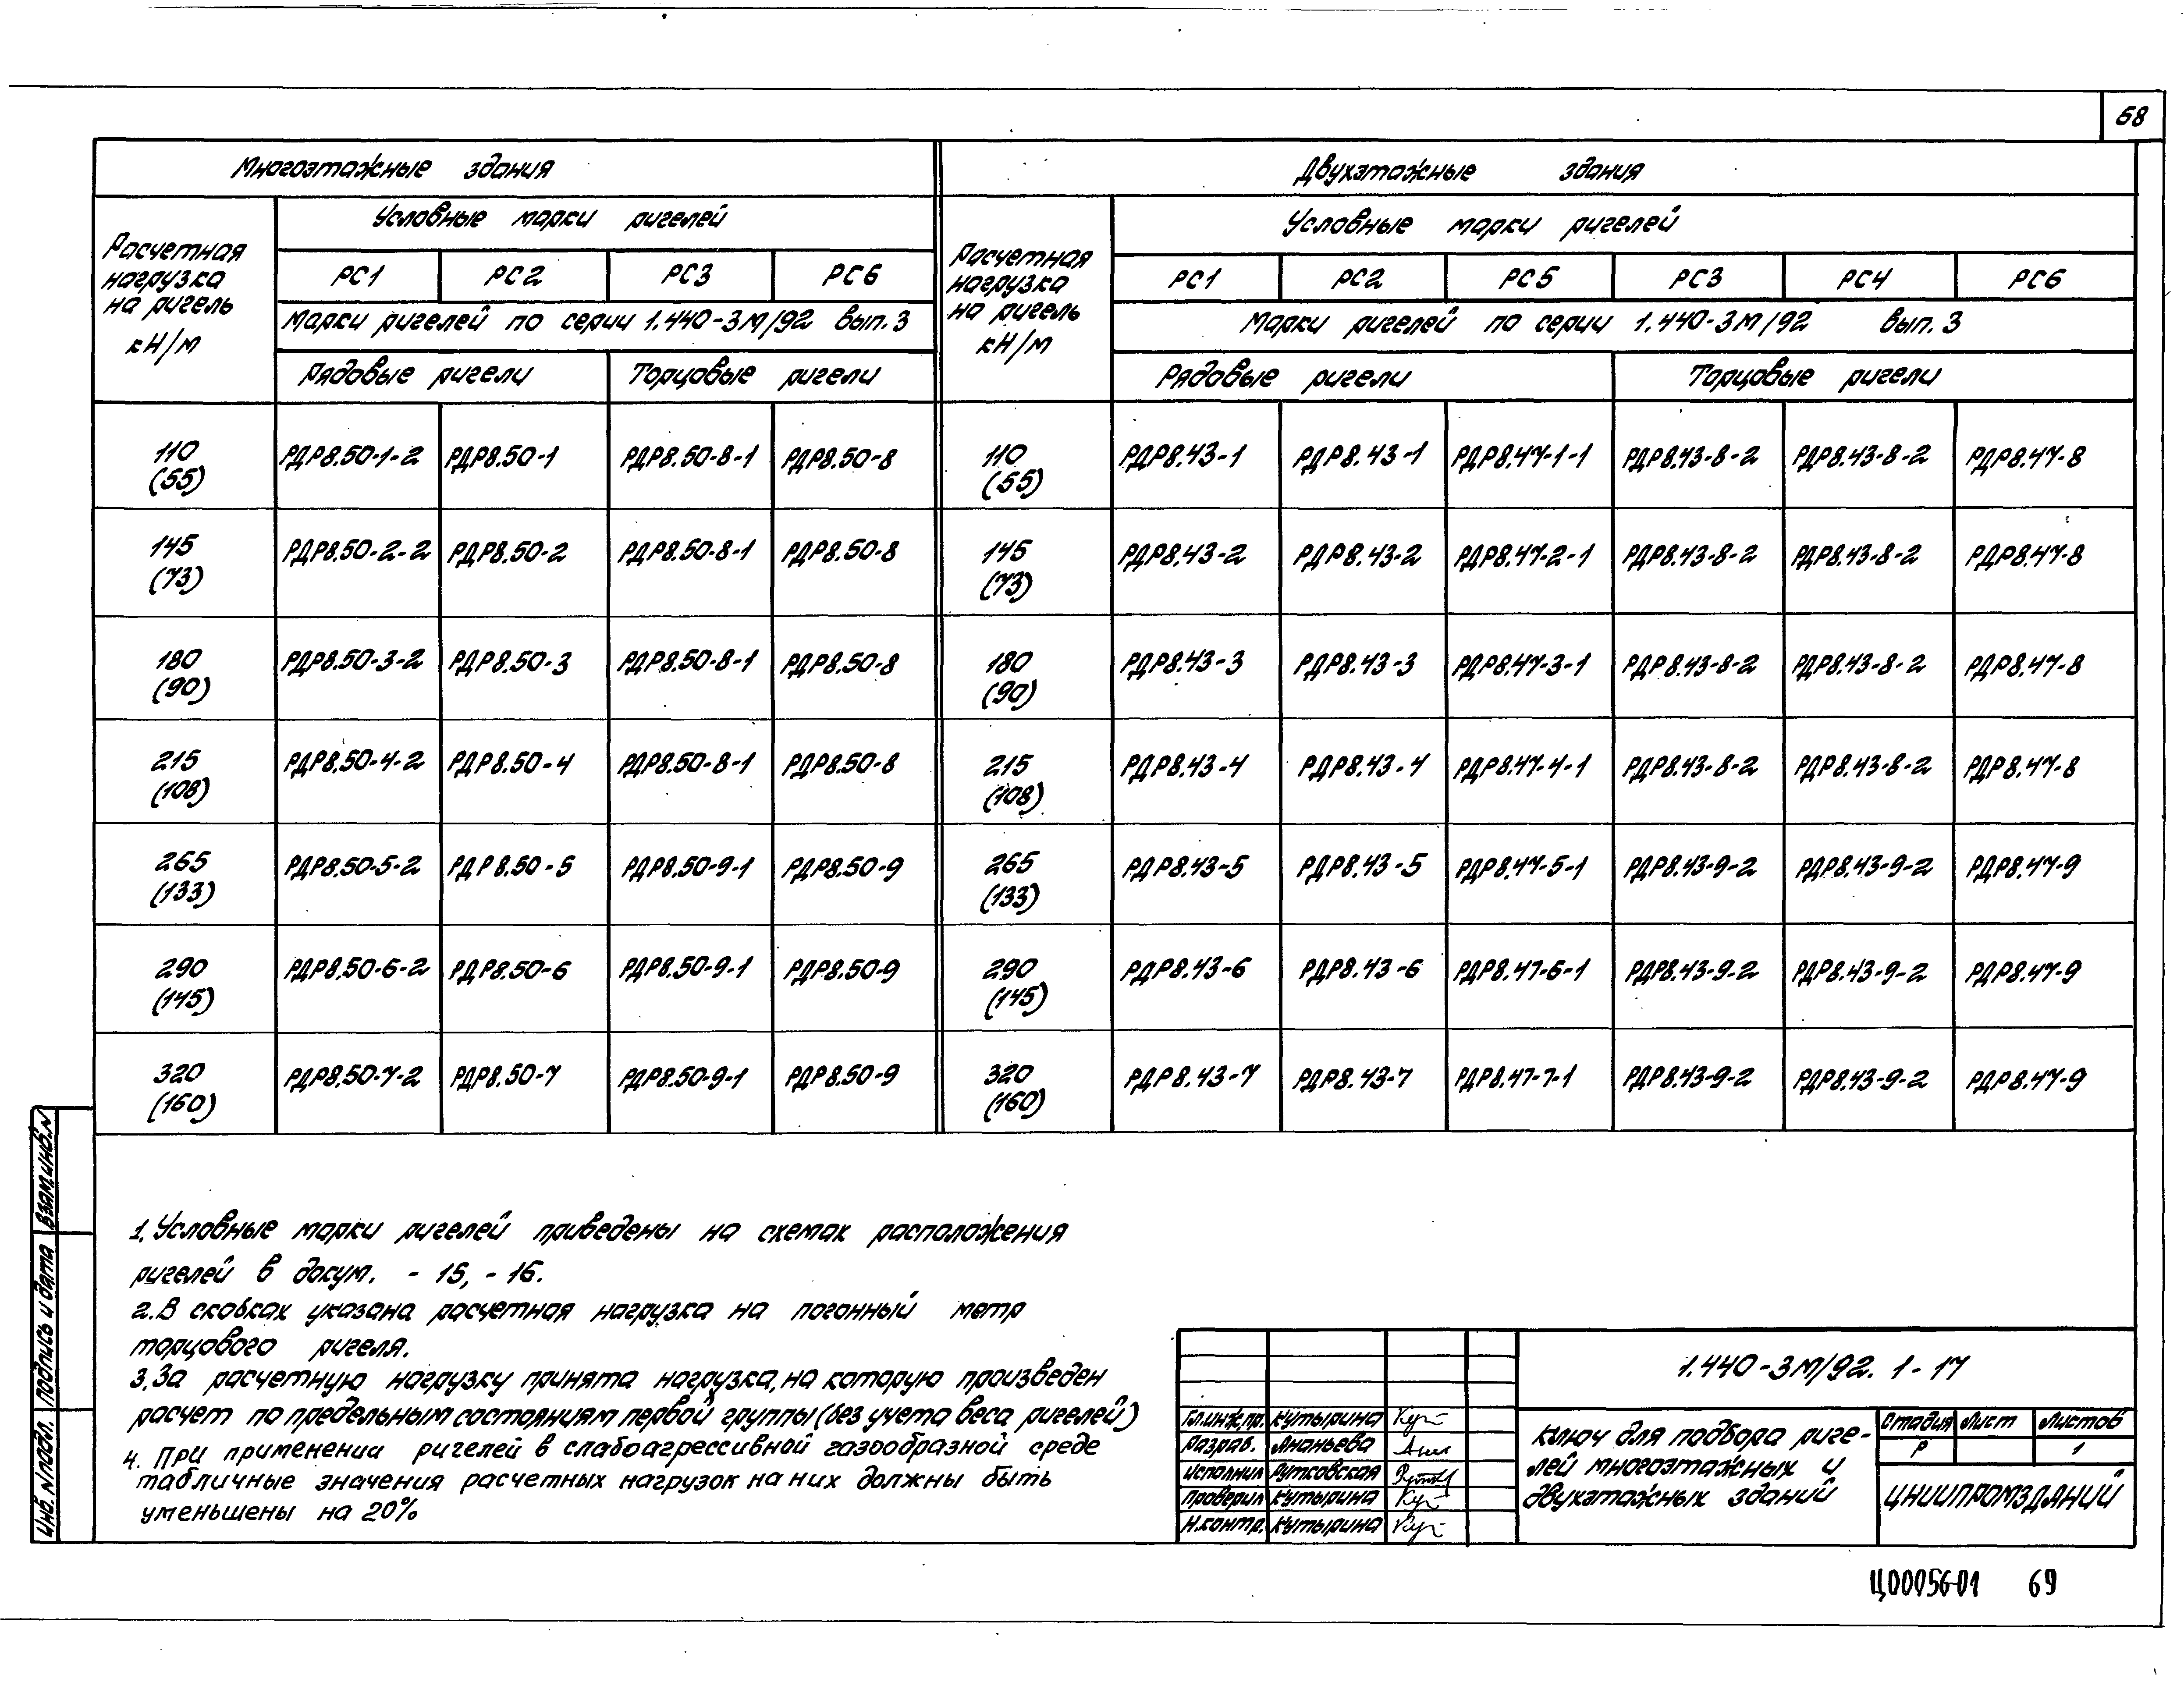 68
Многоэтажные здания
Двухэтажные здания
Расчетная нагрузка на ригель кН/м
Условные марки ригелей
Расчетная нагрузка на ригель кН/м
Условные марки ригелей
РС1 РС2 РС3 РС6
РС1 РС2 РС5 РС3 РС4 РС6
Марки ригелей по серии 1.440-3М/92 вып.3
Марки ригелей по серии 1.440-3М/92 вып.3
Рядовые ригели Торцовые ригели
Рядовые ригели Торцовые ригели
110 (55) РДР8.50-1-2 РДР8.50-1 РДР8.50-8-1 РДР8.50-8 110 (55) РДР8.43-1 РДР8.43-1 РДР8.47-1-1 РДР8.43-8-2 РДР8.43-8-2 РДР8.47-8
145 (73) РДР8.50-2-2 РДР8.50-2 РДР8.50-8-1 РДР8.50-8 145 (73) РДР8.43-2 РДР8.43-2 РДР8.47-2-1 РДР8.43-8-2 РДР8.43-8-2 РДР8.47-8
180 (90) РДР8.50-3-2 РДР8.50-3 РДР8.50-8-1 РДР8.50-8 180 (90) РДР8.43-3 РДР8.43-3 РДР8.47-3-1 РДР8.43-8-2 РДР8.43-8-2 РДР8.47-8
215 (108) РДР8.50-4-2 РДР8.50-4 РДР8.50-8-1 РДР8.50-8 215 (108) РДР8.43-4 РДР8.43-4 РДР8.47-4-1 РДР8.43-8-2 РДР8.43-8-2 РДР8.47-8
265 (133) РДР8.50-5-2 РДР8.50-5 РДР8.50-9-1 РДР8.50-9 265 (133) РДР8.43-5 РДР8.43-5 РДР8.47-5-1 РДР8.43-9-2 РДР8.43-9-2 РДР8.47-9
290 (145) РДР8.50-6-2 РДР8.50-6 РДР8.50-9-1 РДР8.50-9 290 (145) РДР8.43-6 РДР8.43-6 РДР8.47-6-1 РДР8.43-9-2 РДР8.43-9-2 РДР8.47-9
320 (160) РДР8.50-7-2 РДР8.50-7 РДР8.50-9-1 РДР8.50-9 320 (160) РДР8.43-7 РДР8.43-7 РДР8.47-7-1 РДР8.43-9-2 РДР8.43-9-2 РДР8.47-9
1. Условные марки ригелей приведены на схемах расположения
ригелей в докум. -15, -16.
2. В скобках указана расчетная нагрузка на погонный метр
торцового ригеля.
3. За расчетную нагрузку принята нагрузка, на которую произведен
расчет по предельным состояниям первой группы (без учета веса ригелей)
4. При применении ригелей в слабоагрессивной газообразной среде
табличные значения расчетных нагрузок на них должны быть
уменьшены на 20%
Инв. N подл. Подпись и дата Взам.инв.N
1.440-3М/92. 1-17
Гл.инж.пр. Кутырина
Разраб. Ананьева
Исполнил Рутковская
Проверил Кутырина
Н.контр. Кутырина
Ключ для подбора риге-
лей многоэтажных и
двухэтажных зданий
Стадия Лист Листов
Р 1
ЦНИИПРОМЗДАНИЙ
Ц00056-01 69